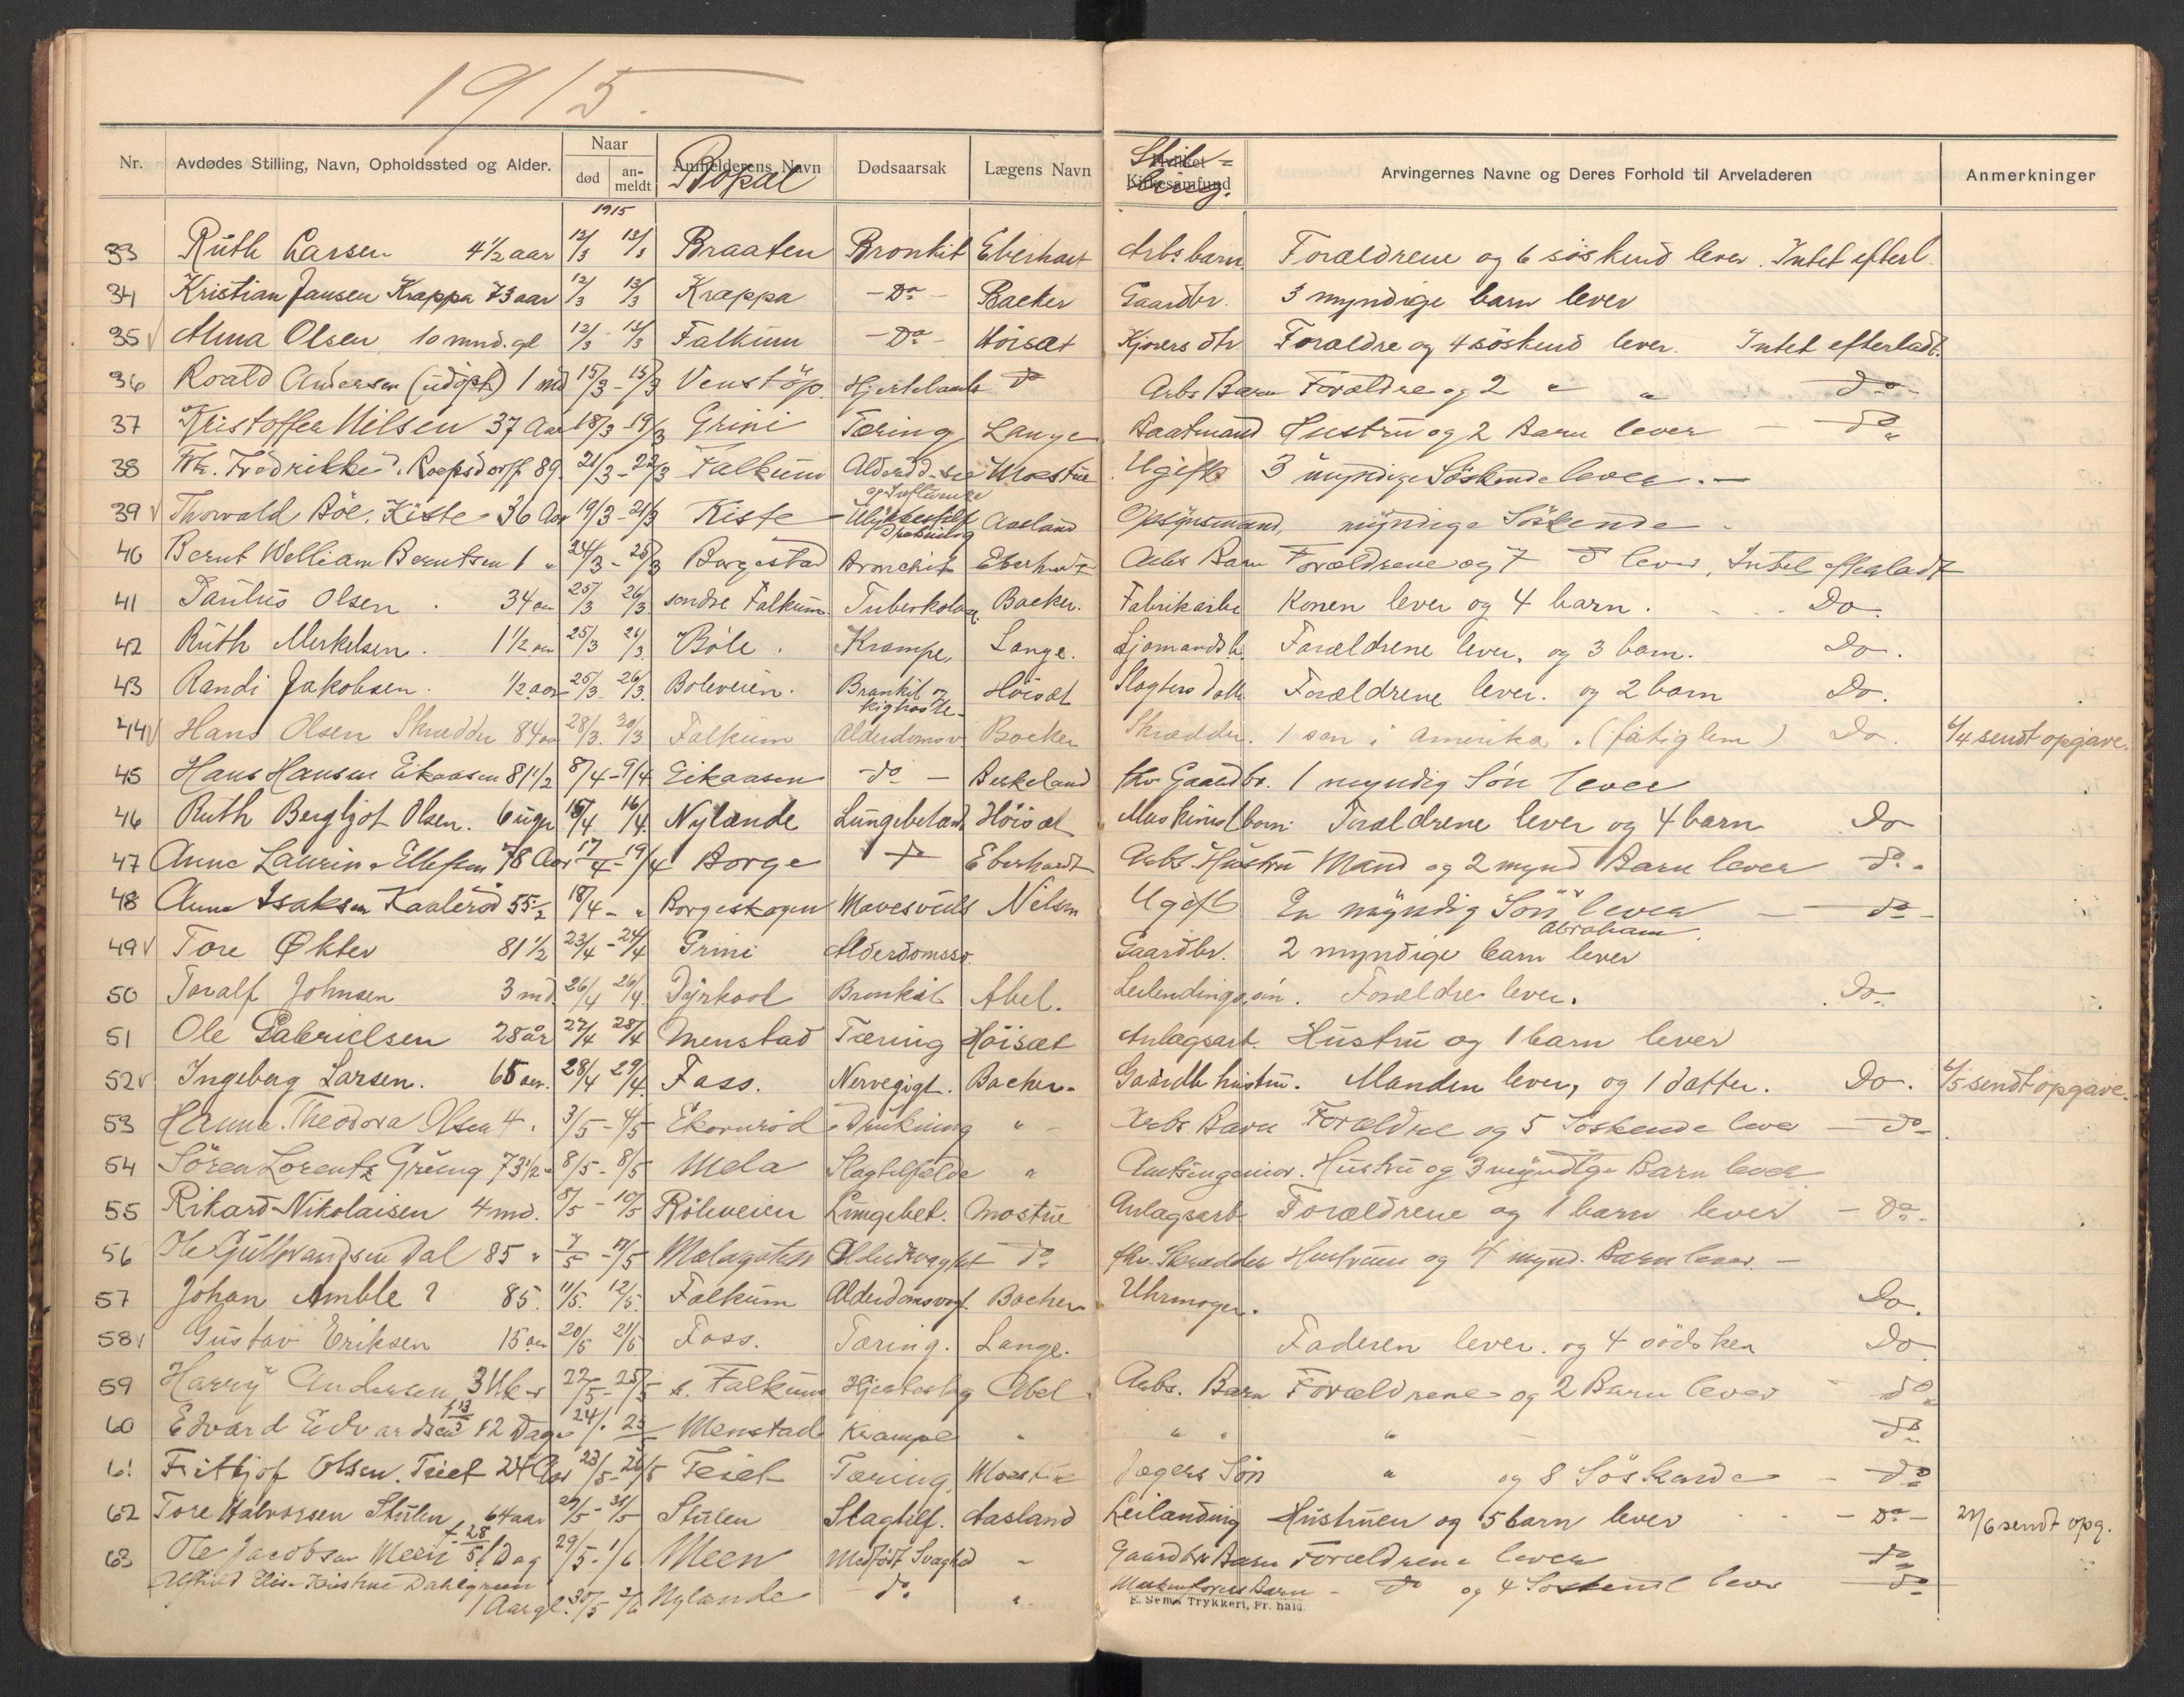 1915.
Nr. Avdødes Stilling, Navn, Opholdssted og Alder. Naar død an-meldt Anmelderens Navn Bopæl Dødsaarsak Lægens Navn Hvilket Kirkesamfund Stilling. Arvingernes Navne og Deres Forhold til Arveladeren Anmerkninger
1915
33 Ruth Larsen 4½ aar 12/3 13/3 Braaten Bronkit Eberhart Arbs barn. Forældrene og 6 søskend lever. Intet efterl.
34 Kristian Jansen Kræppa 73 aar 12/3 13/3 Kræppa - Do - Backer Gaardbr. 3 myndige barn lever
35 Alma Olsen 10 mnd. gl 12/3 - 13/3 Falkum - Do - Høisæt Kjørers dtr. Forældre og 4 søskend lever. Intet efterladt.
36 Roald Andersen (udøpt) 1 md 15/3 - 15/3 Venstøp. do Arbs Barn Forældre og 2 " " do
37 Kristoffer Nilsen 37 Aar 18/3 - 19/3 Grini Tæring Lange Baatmand Hustru og 2 Barn lever - do
38 Frk. Fredrikke Roepsdorff 89. 21/3 - 22/3 Falkum og Influenza Mæstue Ugift 3 myndige Søskende lever. -
39 Thorvald Böe. Kiste 36 Aar 19/3 - 21/3 Kiste Ulykkestilf Drukning Aasland Opsynsmand, myndige Söskende -
40 Bernt William Berntsen 1 " 24/3 - 25/3 Borgestad Bronchit Eberhardt Arbs Barn Forældrene og 7 d lever, Intet efterladt
41 Paulus Olsen. 34 aar 25/3 26/3 søndre Falkum Tuberkolose Backer. Fabrikarb. Konen lever og 4 barn. Do.
42 Ruth Merkelsen. 1½ aar 25/3 26/3. Bøle. Krampe. Lange. Sjømands b. Forældrene lever. og 3 barn. Do.
43 Randi Jakobsen. ½ aar 25/3. 26/3. Bøleveien. Bronkit og kighoste Høisæt Slagters datter Forældrene lever. og 2 barn Do.
44 Hans Olsen Skrædder 84 aar 28/3. 30/3. Falkum Alderdomsv Backer Skrædder. 1 søn i Amerika. (fatiglem) Do. 6/4 sendt opgave.
45 Hans Hansen Eikaasen 81½ 8/4 - 9/4 Eikaasen - do - Berkeland fhv Gaardbr. 1 myndig Søn lever
46 Ruth Bergljot Olsen. 6 uger 15/4 16/4. Nylænde Lungebetænd Høisæt Maskinist barn. Forældrene lever og 4 barn Do
47 Anne Laurine Ellefsen 78 Aar 17/4 - 19/4 Borge do Eberhardt Arbs. Hustru Mand og 2 mynd Barn lever do.
48 Anne Isaksen Kaalerød 55½ 18/4 - " Borgeskogen Mavesvulst Nilsen Ugift En myndig Søn lever - do -
49 Tore Økter 81½ 23/4 - 24/4 Grini Alderdomssv. Gaardbr. 2 myndige barn lever Abraham.
50 Toralf Johnsen 3 md 26/4 26/4. Dyrkoot Bronkit Abel. Leilendings søn. Forældre lever. Do.
51 Ole Gabrielsen 28 år 27/4 28/4 Menstad Tæring Høisæt Anlægsarb. Hustru og 1 barn lever
52 Ingeborg Larsen. 65 aar. 28/4 29/4. Foss. Nervegigt. Backer. Gaardb hustru. Manden lever, og 1 datter. Do. 6/5 sendt opgave.
53 Hanna Theodora Olsen 4. 3/5 - 4/5 Ekornrød Drukning " Arbs Barn Forældre og 5 Søskende lever - do -
54 Søren Lorentz Grüng 73½ 8/5 - 8/5 Mela Slagtilfælde " Amtsingeniør. Hustru og 3 myndige Barn lever.
55 Rikard Nikolaisen 4 md. 8/5 - 10/5 Bøleveien Lungebet. Mostue Anlægsarb. Forældrene og 1 barn lever - Do -
56 Ole Gulbrandsen Dal 85 " 7/5 - 11/5 Melagaten do fhv. Skrædder Hustruen og 4 mynd. Barn lever. -
57 Johan Amble ? 85. 11/5. 12/5. Falkum Alderdomsvagt. Backer Uhrmager. Do.
58 Gustav Eriksen 15 aar 20/5 21/5 Foss. Tæring. Lange. Faderen lever. og 4 sødsken Do.
59 Harry Andersen 3 Uker 22/5 - 25/5 s. Falkum Abel Arbs. Barn Forældrene og 2 Barn lever - do
60 Edvard Edvardsen f 13/5 12 Dage 24/5. 25 Menstad Krampe " " " " do
61 Fritkjof Olsen. Teiet 24 Aar 23/5 - 26/5 Teiet Tæring. Mæstue Jægers Søn " og 8 Søskende - do
62 Tore Halvorsen Stulen 64 aar 29/5 - 31/5 Stulen Slagtilf. Aasland Leilænding Hustruen og 5 barn lever - Do - 21/6 sendt opg.
63 Ole Jacobsen Meen f 28/5 1 Dag 29/5 - 1/6 Meen Medfødt Svaghed " Gaardbr Barn Forældrene lever do
Elis. Kristine Dahlgreen 1 Aar gl. 30/5 2/6 Nylænde do. " Barn - do og 4 Søskende lever do
E. Sems Trykkeri, Fr.hald.